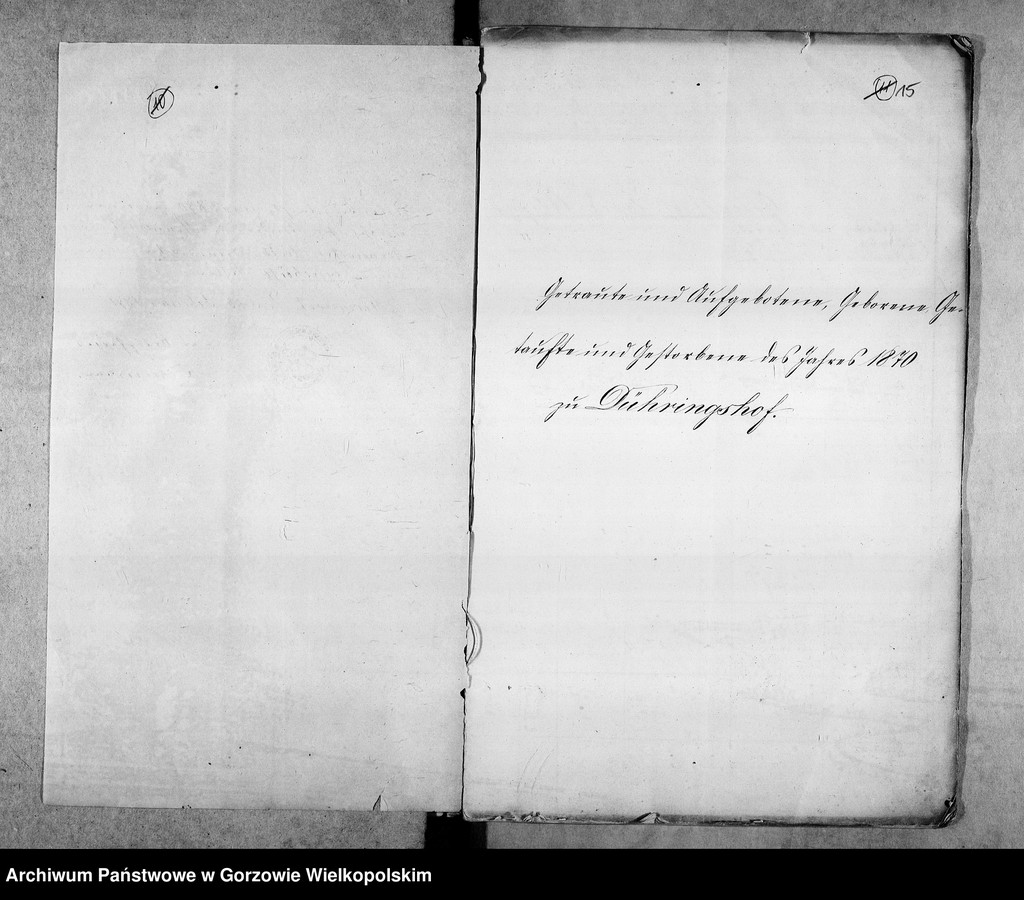 10
11 15
Getraute und Aufgebotene, Geborene, Ge-
taufte und Gestorbene des Jahres 1870
zu Dühringshof.
Archiwum Państwowe w Gorzowie Wielkopolskim